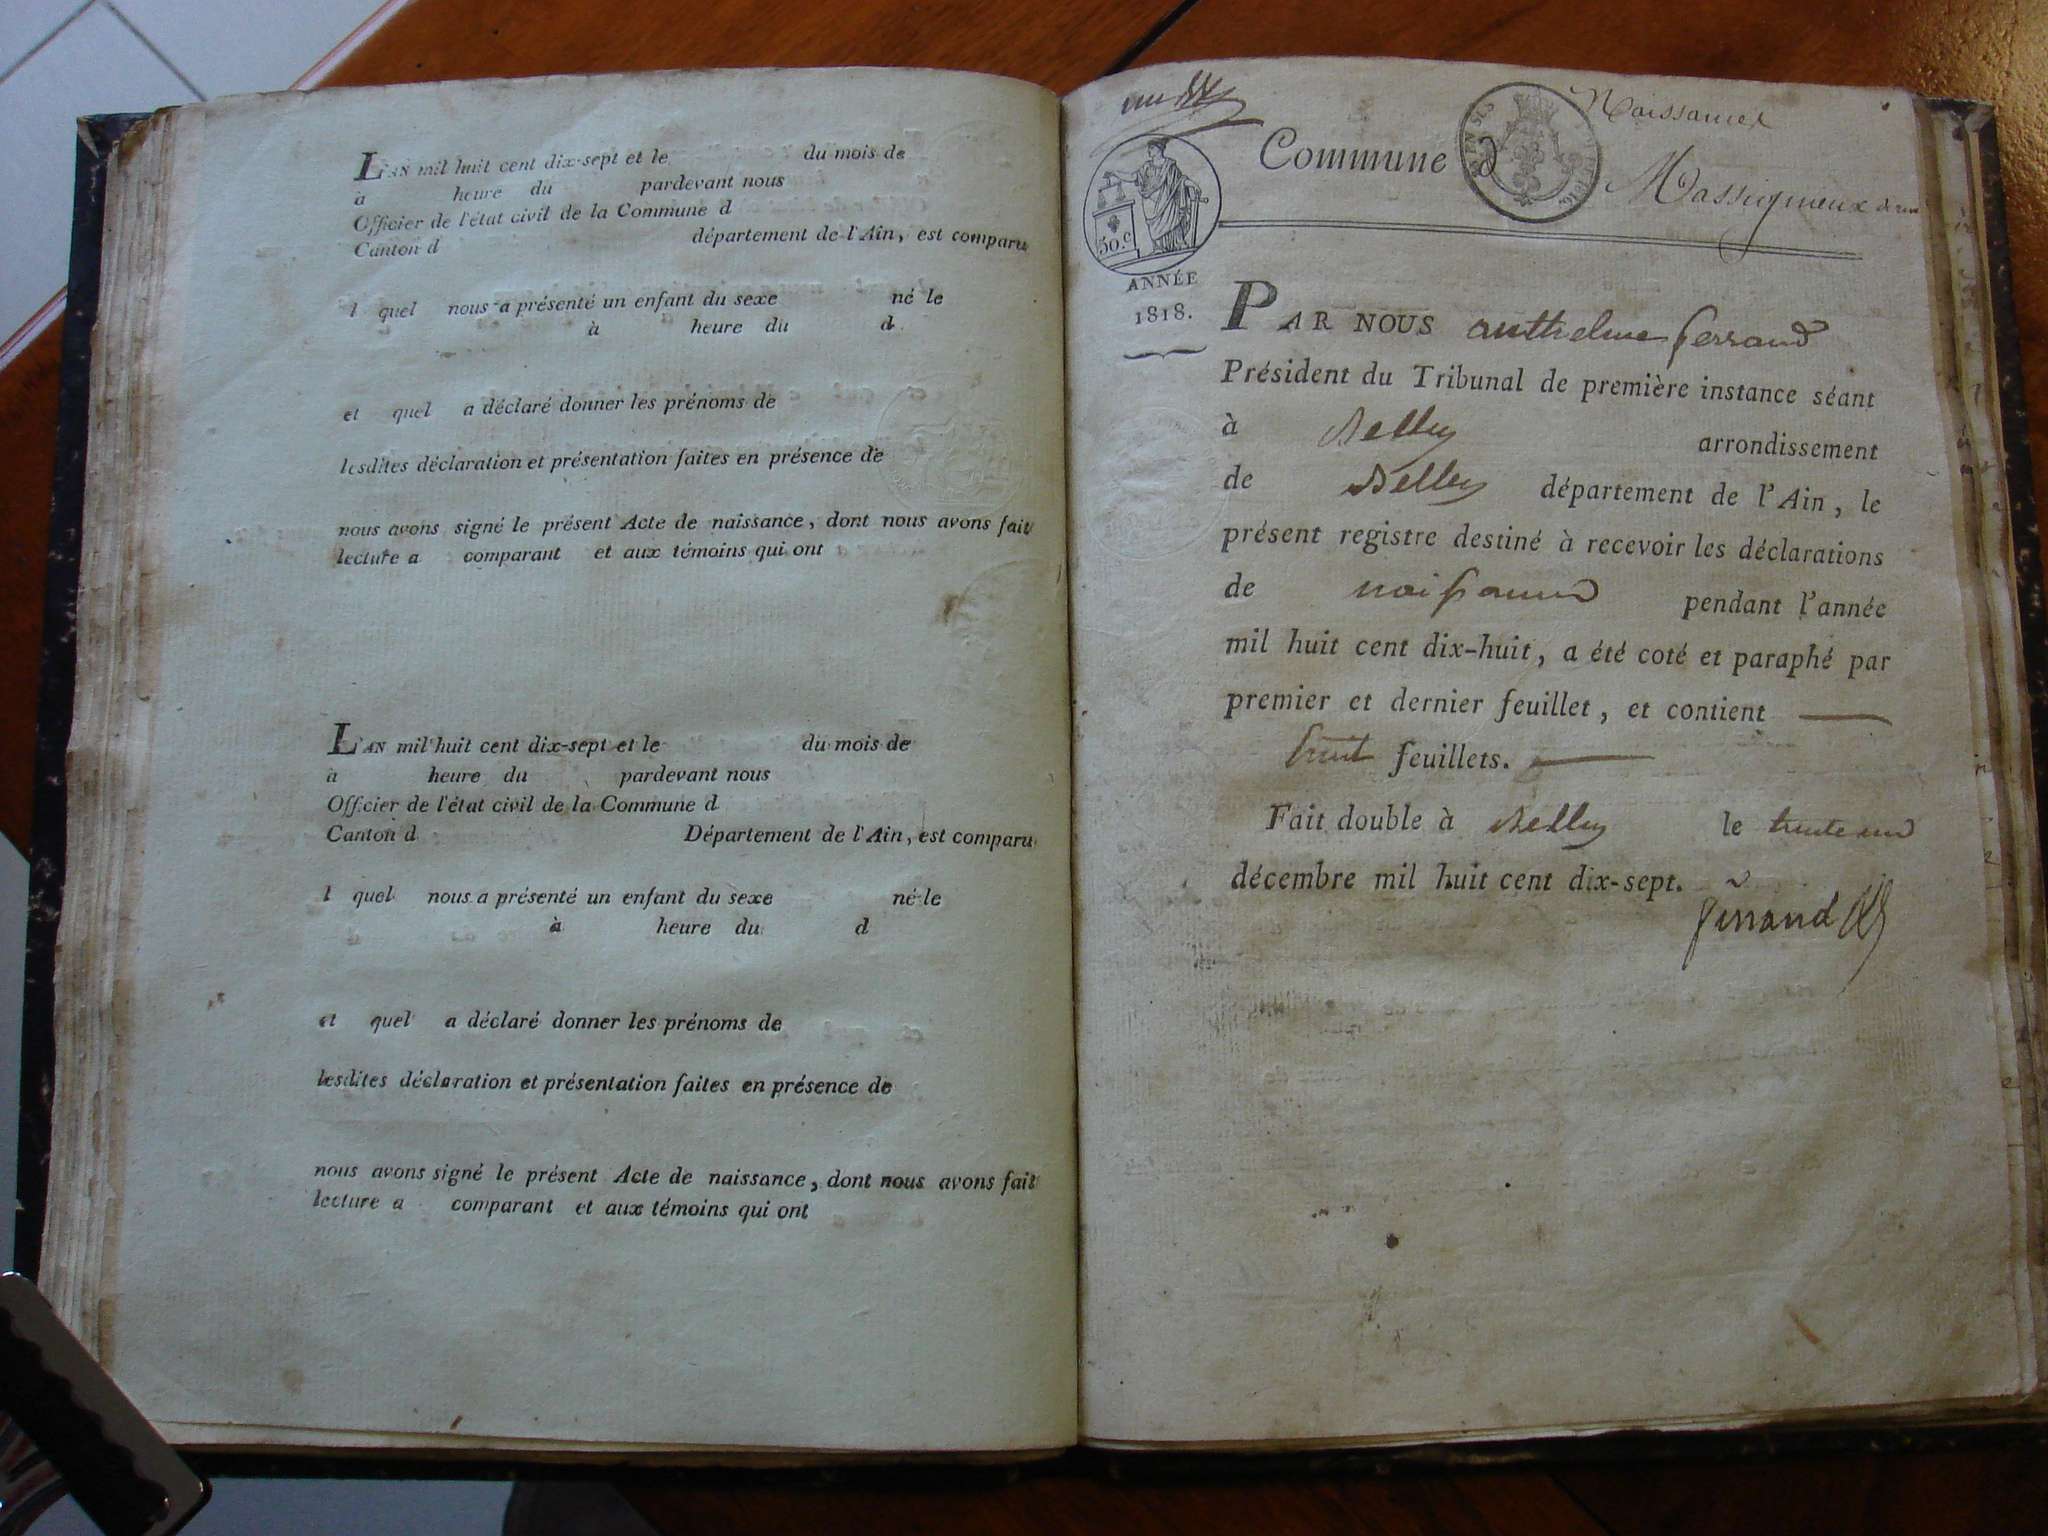 L'AN mil huit cent dix-sept et le du mois de
à heure du pardevant nous
Officier de l'état civil de la Commune d
Canton d département de l'Ain, est comparu
l quel nous a présenté un enfant du sexe né le
à heure du d
et quel a déclaré donner les prénoms de
lesdites déclaration et présentation faites en présence de
nous avons signé le présent Acte de naissance, dont nous avons fait
lecture a comparant et aux témoins qui ont
L'AN mil huit cent dix-sept et le du mois de
à heure du pardevant nous
Officier de l'état civil de la Commune d
Canton d Département de l'Ain, est comparu
l quel nous a présenté un enfant du sexe né le
à heure du d
et quel a déclaré donner les prénoms de
lesdites déclaration et présentation faites en présence de
nous avons signé le présent Acte de naissance, dont nous avons fait
lecture a comparant et aux témoins qui ont
Naissances
Commune d Massignieux
50.c
ANNÉE
1818.
PAR NOUS anthelme ferrand
Président du Tribunal de première instance séant
à Belley arrondissement
de Belley département de l'Ain, le
présent registre destiné à recevoir les déclarations
de naissances pendant l'année
mil huit cent dix-huit, a été coté et paraphé par
premier et dernier feuillet, et contient
huit feuillets.
Fait double à Belley le trente un
décembre mil huit cent dix-sept.
ferrand